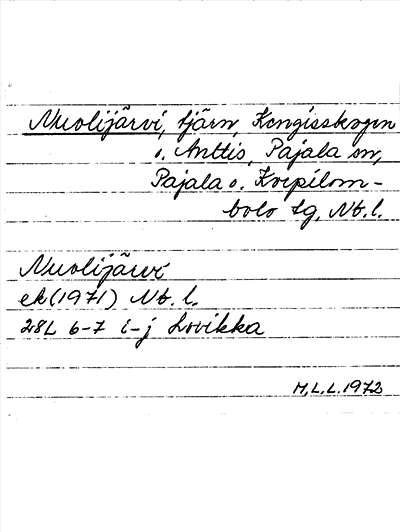 Nuolijärvi, tjärn, Kengisskogen
o. Anttis, Pajala sn,
Pajala o. Korpilom-
bolo tg, Nb. l.
Nuolijärvi
ek (1971) Nb. l.
28L 6-7 i-j Lovikka
M.L.L. 1973